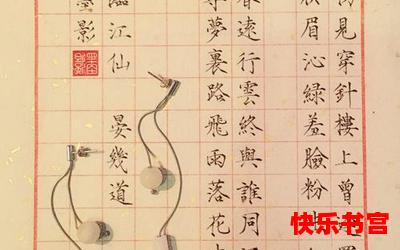 見穿針樓上曾
眉沁綠羞臉粉
春遠行雲終與誰同
尋夢裏路飛雨落花
臨江仙 晏幾道
墨影
快乐书宫